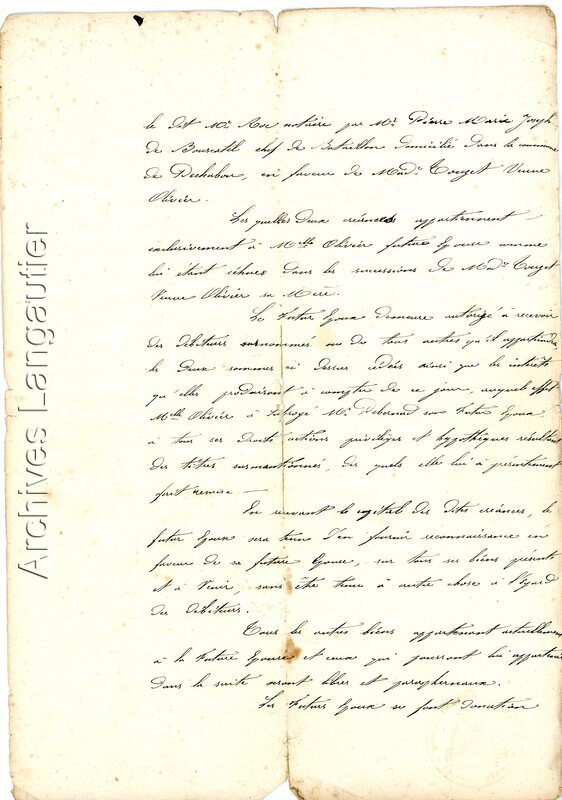 le dit Mr. Roc notaire par Mr. Pierre Marie Joseph
de Bourcatel chef de Bataillon domicilié dans la commune
de Pechabou, en faveur de Made. Touget Veuve
Olivier.
Les quelles deux créances appartiennent
exclusivement à Mlle Olivier future Epouse comme
lui étant échues dans les successions de Made. Touget
Veuve Olivier sa Mère.
Le Futur Epoux demeure autorizé à recevoir
des débiteurs surnommés ou de tous autres qu'il appartiendra
les deux sommes ci dessus cédées ainsi que les intérêts
qu'elles produiront à compter de ce jour, auquel effet
Mlle Olivier à subrogé Mr. Debernad son Futur Epoux
à tous ses droits actions privilèges et hypothèques résultant
des titres surmentionnés, des quels elle lui à présentement
fait remise —
En recevant le capital des dites créances, le
futur Epoux sera tenu d'en fournir reconnaissance en
faveur de sa future Epouse, sur tous ses biens présents
et à Venir, sans être tenu à autre chose à l'égard
des débiteurs.
Tous les autres biens appartenant actuellement
à la Future Epouse et ceux qui pourront lui appartenir
dans la suite seront libres et paraphernaux.
Les Futurs Epoux se font donation
Archives Langautier